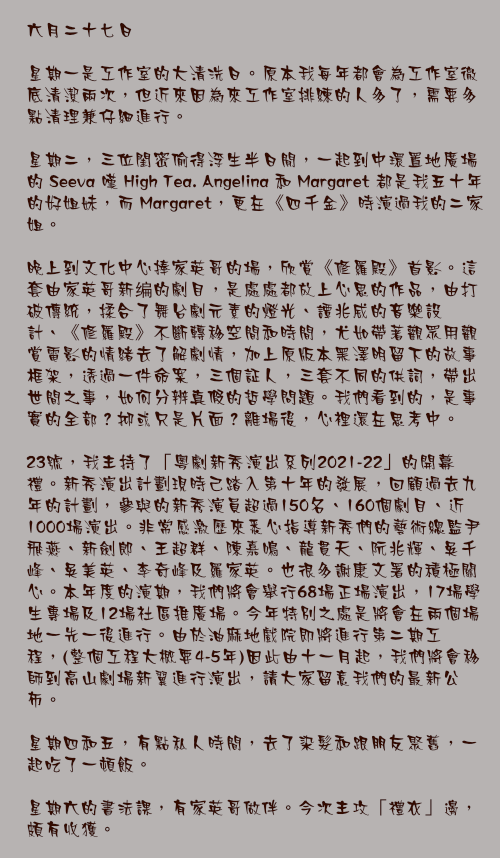 六月二十七日
星期一是工作室的大清洗日。原本我每年都會為工作室徹
底清潔兩次，但近來因為來工作室排練的人多了，需要多
點清理兼仔細進行。
星期二，三位閨密偷得浮生半日閒，一起到中環置地廣場
的 Seeva 嘆 High Tea. Angelina 和 Margaret 都是我五十年
的好姐妹，而 Margaret，更在《四千金》時演過我的二家
姐。
晚上到文化中心捧家英哥的場，欣賞《修羅殿》首影。這
套由家英哥新編的劇目，是處處都放上心思的作品，由打
破傳統，揉合了舞台劇元素的燈光、譚兆威的音樂設
計、《修羅殿》不斷轉移空間和時間，尤如帶著觀眾用觀
賞電影的情緒去了解劇情，加上原版本黑澤明留下的故事
框架，透過一件命案，三個証人，三套不同的供詞，帶出
世間之事，如何分辨真假的哲學問題。我們看到的，是事
實的全部？抑或只是片面？離場後，心裡還在思考中。
23號，我主持了「粵劇新秀演出系列2021-22」的開幕
禮。新秀演出計劃現時已踏入第十年的發展，回顧過去九
年的計劃，參與的新秀演員超過150名、160個劇目、近
1000場演出。非常感激歷來悉心指導新秀們的藝術總監尹
飛燕、新劍郎、王超群、陳嘉鳴、龍貫天、阮兆輝、吳千
峰、吳美英、李奇峰及羅家英。也很多謝康文署的積極關
心。本年度的演期，我們將會舉行68場正場演出，17場學
生專場及12場社區推廣場。今年特別之處是將會在兩個場
地一先一後進行。由於油麻地戲院即將進行第二期工
程，(整個工程大概要4-5年)因此由十一月起，我們將會移
師到高山劇場新翼進行演出，請大家留意我們的最新公
布。
星期四和五，有點私人時間，去了染髮和跟朋友聚舊，一
起吃了一頓飯。
星期六的書法課，有家英哥做伴。今次主攻「禮衣」邊，
頗有收獲。